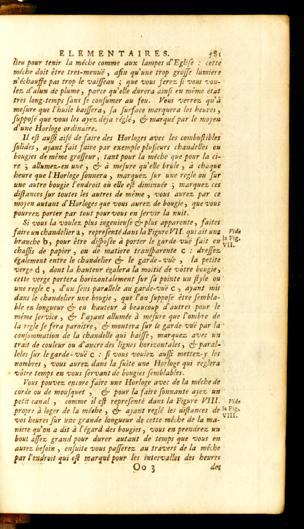 ELEMENTAIRES. 581
lieu pour tenir la méche comme aux lampes d'Eglise : cette
méche doit être tres-menuë, afin qu'une trop grosse lumiere
n'échauffe pas trop le vaisseau ; que vous ferez si vous vou-
lez d'alun de plume, parce qu'elle durera ainsi en même état
tres long-temps sans se consumer au feu. Vous verrez qu'à
mesure que l'huile baissera, la surface marquera les heures,
supposé que vous les ayez déja réglé, & marqué par le moyen
d'une Horloge ordinaire.
Il est aussi aisé de faire des Horloges avec les combustibles
solides, ayant fait faire par exemple plusieurs chandelles ou
bougies de même grosseur, tant pour la méche que pour la ci-
re ; allumez-en une, & à mesure qu'elle brûle, à chaque
heure que l'Horloge sonnera, marquez sur une regle ou sur
une autre bougie l'endroit où elle est diminuée ; marquez ces
distances sur toutes les autres de même, vous aurez par ce
moyen autant d'Horloges que vous aurez de bougie, que vous
pourrez porter par tout pour vous en servir la nuit.
Si vous la voulez plus ingenieuse & plus apparente, faites
faire un chandelier a, representé dans la Figure VII. qui ait une
branche b, pour être disposée à porter le garde-vuë fait en
chassis de papier, ou de matiere transparente c : dressez
également entre le chandelier & le garde-vuë, la petite
verge d, dont la hauteur égalera la moitié de vôtre bougie,
cette verge portera horizontalement sur sa pointe un style ou
une regle e, d'un sens parallele au garde-vuë c, ayant mis
dans le chandelier une bougie, que l'on suppose être sembla-
ble en longueur & en hauteur à beaucoup d'autres pour le
même service, & l'ayant allumée à mesure que l'ombre de
la regle se fera paroître, & montera sur le garde-vuë par la
consommation de la chandelle qui baisse, marquez avec un
trait de couleur ou d'ancre des lignes horizontales, & paral-
leles sur le garde-vuë c : si vous voulez aussi mettez-y les
nombres, vous aurez dans la suite une Horloge qui reglera
vôtre temps en vous servant de bougies semblables.
Vous pouvez encore faire une Horloge avec de la méche de
corde ou de mousquet, & pour la faire sonnante ayez un
petit canal, comme il est representé dans la Figure VIII.
propre à loger de la méche, & ayant reglé les distances de
vos heures sur une grande longueur de cette méche de la ma-
niere qu'on a dit à l'égard des bougies, vous en prendrez un
bout assez grand pour durer autant de temps que vous en
aurez besoin, ensuite vous passerez au travers de la méche
par l'endroit qui est marqué pour les intervalles des heures
Oo 3 des
Vide
la Fig.
VII.
Vide
la Fig.
VIII.